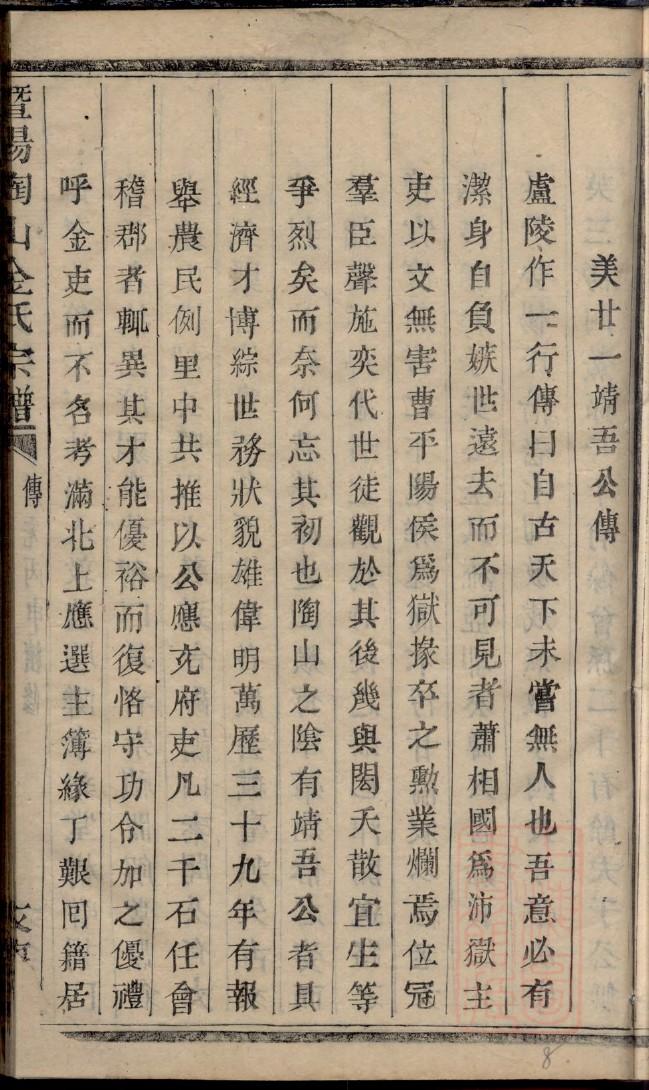 美廿一靖吾公傳
盧陵作一行傳曰自古天下未嘗無人也吾意必有
潔身自負嫉世遠去而不可見者蕭相國爲沛獄主
吏以文無害曹平陽侯爲獄掾卒之勲業爛焉位冠
羣臣聲施奕代世徒觀於其後幾與閎夭散宜生等
爭烈矣而奈何忘其初也陶山之陰有靖吾公者具
經濟才博綜世務狀貌雄偉明萬歷三十九年有報
舉農民例里中共推以公應充府吏凡二千石任會
稽郡者輒異其才能優裕而復恪守功令加之優禮
呼金吏而不名考滿北上應選主簿緣丁艱回籍居
暨陽陶山金氏宗譜
傳
8